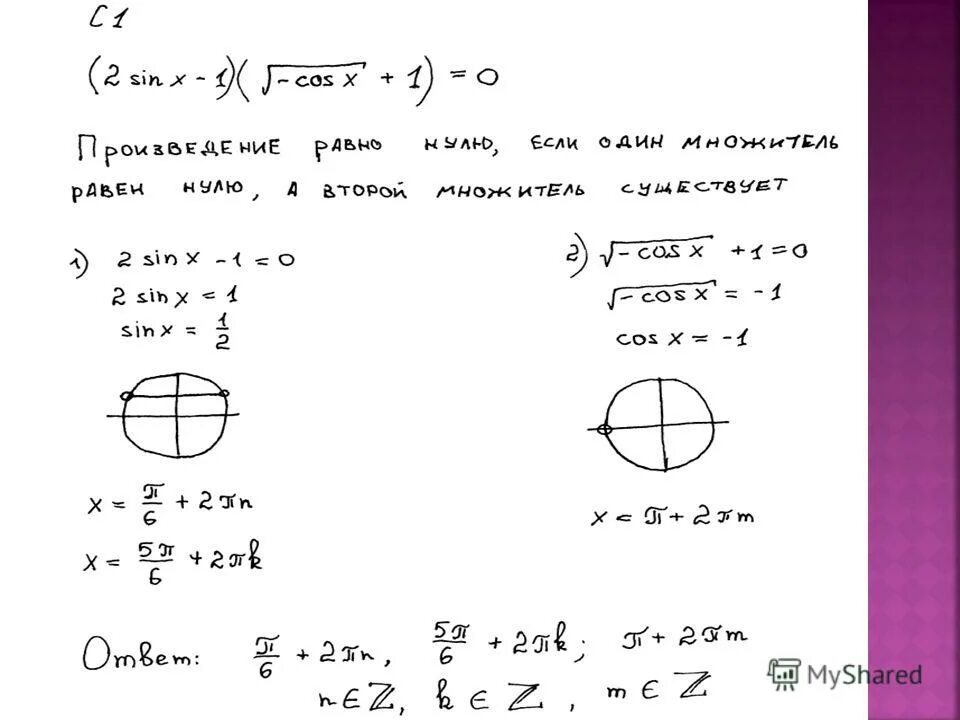 С1
(2 sin x - 1)(√-cos x + 1) = 0
Произведение равно нулю, если один множитель
равен нулю, а второй множитель существует
1) 2 sin x - 1 = 0
2 sin x = 1
sin x = 1/2
x = π/6 + 2πn
x = 5π/6 + 2πk
2) √-cos x + 1 = 0
√-cos x = -1
cos x = -1
x = π + 2πm
Ответ: π/6 + 2πn, 5π/6 + 2πk; π + 2πm
n ∈ Z, k ∈ Z, m ∈ Z
MyShared